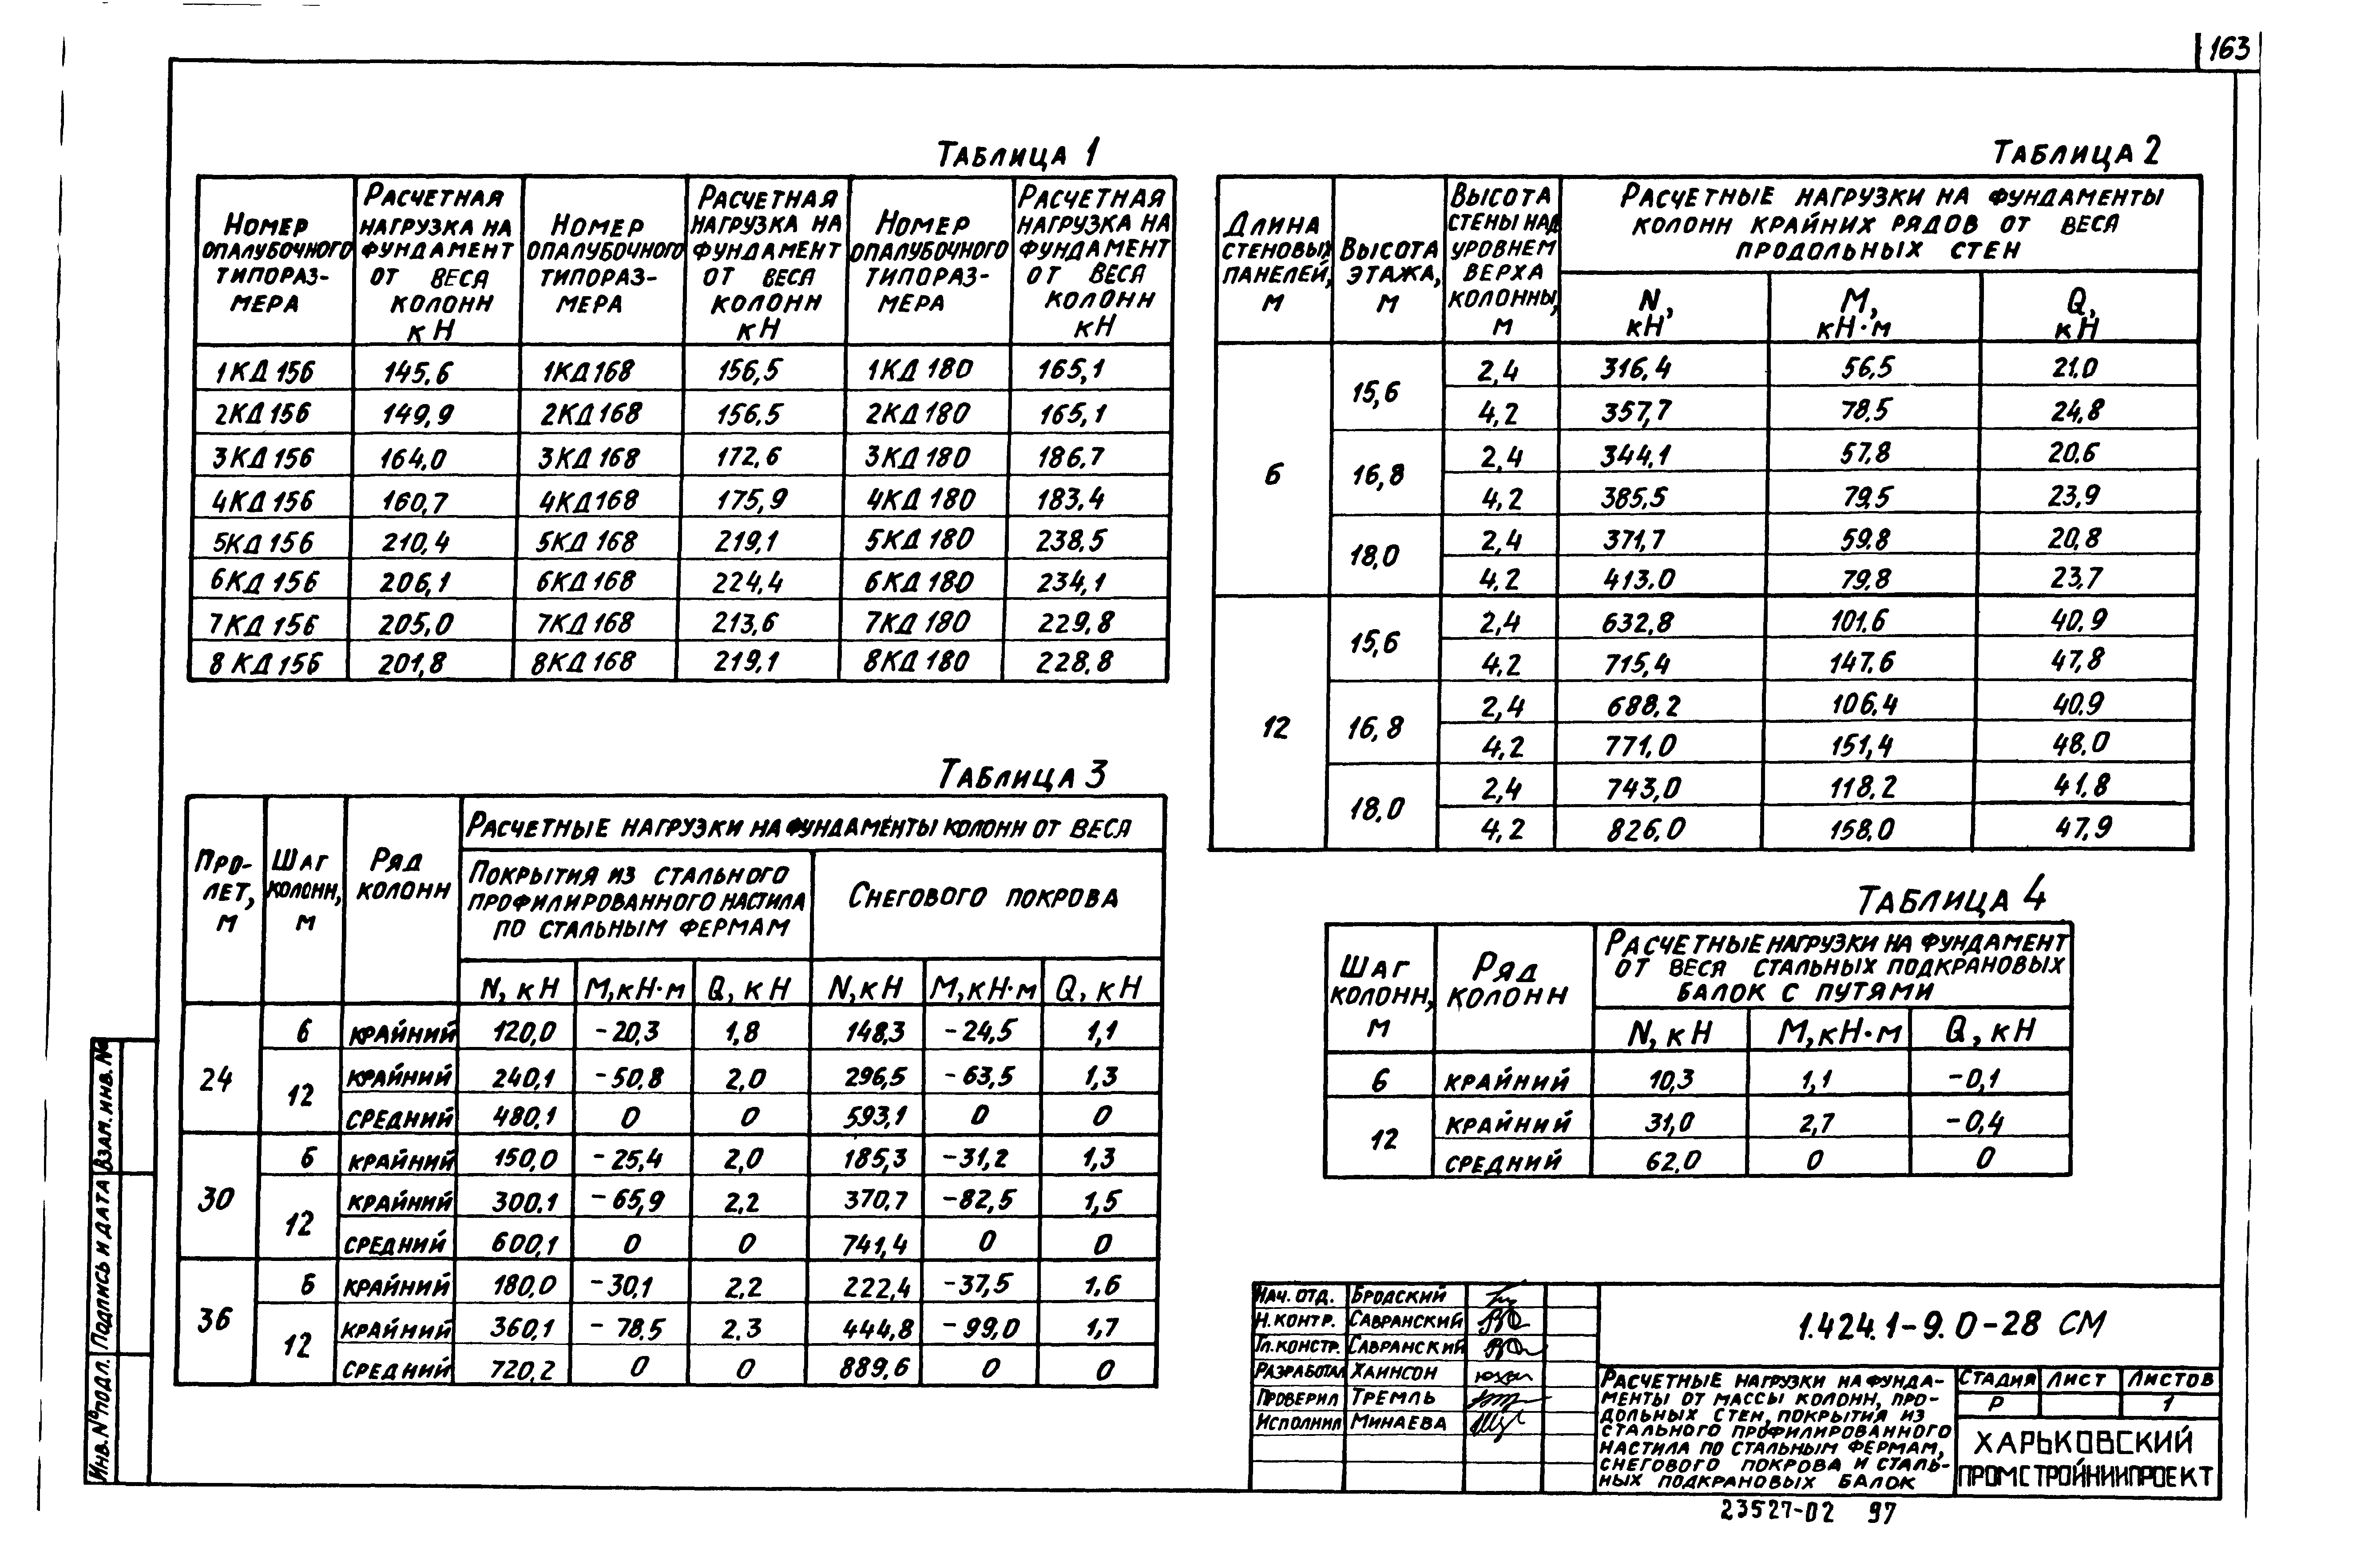 163
Таблица 1
Номер опалубочного типораз-мера | Расчетная нагрузка на фундамент от веса колонн кН | Номер опалубочного типораз-мера | Расчетная нагрузка на фундамент от веса колонн кН | Номер опалубочного типораз-мера | Расчетная нагрузка на фундамент от веса колонн кН
1КД156 145,6 1КД168 156,5 1КД180 165,1
2КД156 149,9 2КД168 156,5 2КД180 165,1
3КД156 164,0 3КД168 172,6 3КД180 186,7
4КД156 160,7 4КД168 175,9 4КД180 183,4
5КД156 210,4 5КД168 219,1 5КД180 238,5
6КД156 206,1 6КД168 224,4 6КД180 234,1
7КД156 205,0 7КД168 213,6 7КД180 229,8
8КД156 201,8 8КД168 219,1 8КД180 228,8
Таблица 2
Длина стеновых панелей, м | Высота этажа, м | Высота стены над уровнем верха колонны, м | Расчетные нагрузки на фундаменты колонн крайних рядов от веса продольных стен
N, кН M, кН·м Q, кН
6 15,6 2,4 316,4 56,5 21,0
4,2 357,7 78,5 24,8
16,8 2,4 344,1 57,8 20,6
4,2 385,5 79,5 23,9
18,0 2,4 371,7 59,8 20,8
4,2 413,0 79,8 23,7
12 15,6 2,4 632,8 101,6 40,9
4,2 715,4 147,6 47,8
16,8 2,4 688,2 106,4 40,9
4,2 771,0 151,4 48,0
18,0 2,4 743,0 118,2 41,8
4,2 826,0 158,0 47,9
Таблица 3
Про-лет, м | Шаг колонн, м | Ряд колонн | Расчетные нагрузки на фундаменты колонн от веса
Покрытия из стального профилированного настила по стальным фермам | Снегового покрова
N, кН M, кН·м Q, кН N, кН M, кН·м Q, кН
24 6 крайний 120,0 -20,3 1,8 148,3 -24,5 1,1
12 крайний 240,1 -50,8 2,0 296,5 -63,5 1,3
средний 480,1 0 0 593,1 0 0
30 6 крайний 150,0 -25,4 2,0 185,3 -31,2 1,3
12 крайний 300,1 -65,9 2,2 370,7 -82,5 1,5
средний 600,1 0 0 741,4 0 0
36 6 крайний 180,0 -30,1 2,2 222,4 -37,5 1,6
12 крайний 360,1 -78,5 2,3 444,8 -99,0 1,7
средний 720,2 0 0 889,6 0 0
Таблица 4
Шаг колонн, м | Ряд колонн | Расчетные нагрузки на фундамент от веса стальных подкрановых балок с путями
N, кН M, кН·м Q, кН
6 крайний 10,3 1,1 -0,1
12 крайний 31,0 2,7 -0,4
средний 62,0 0 0
Взам.инв.№
Подпись и дата
Инв.№ подл.
Нач. отд. Бродский
Н.контр. Савранский
Гл.констр. Савранский
Разработал Хаинсон
Проверил Тремль
Исполнил Минаева
1.424.1-9.0-28 СМ
Расчетные нагрузки на фунда-
менты от массы колонн, про-
дольных стен, покрытия из
стального профилированного
настила по стальным фермам,
снегового покрова и сталь-
ных подкрановых балок
Стадия Лист Листов
Р 1
Харьковский
Промстройниипроект
23527-02 97